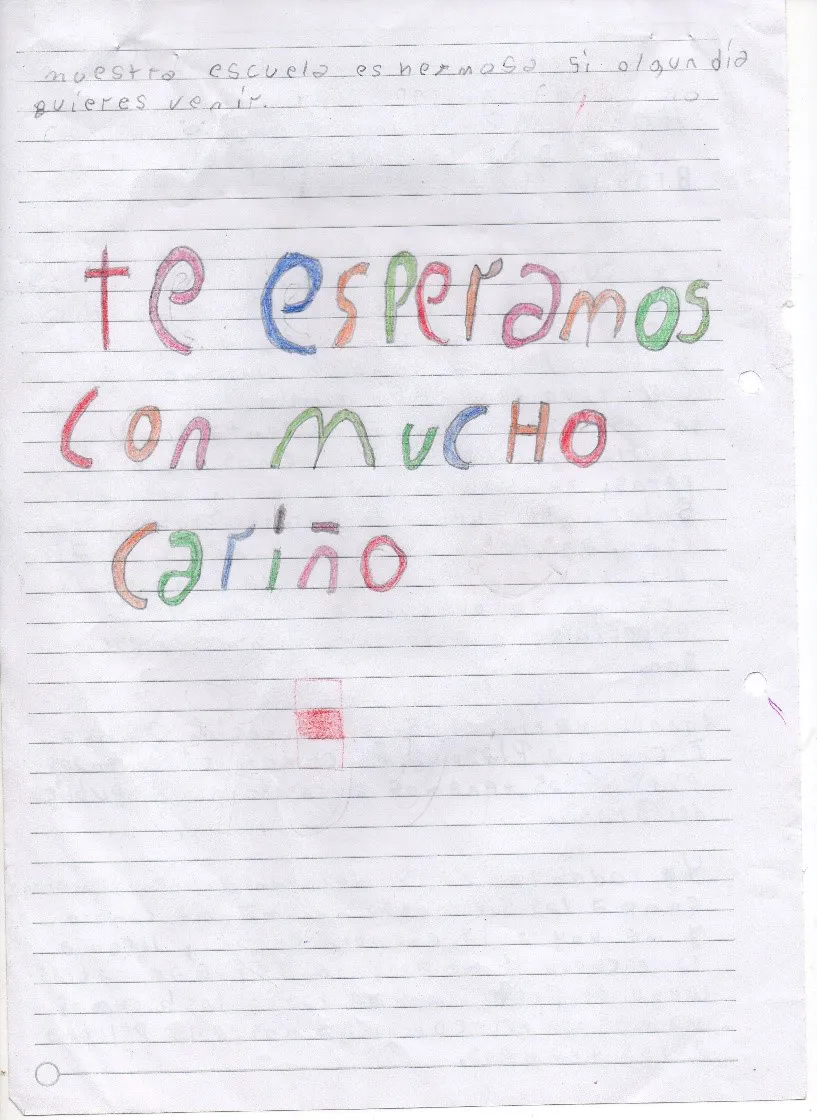 nuestra escuela es hermosa si algun día
quieres venir.
te esperamos
con mucHo
cariño